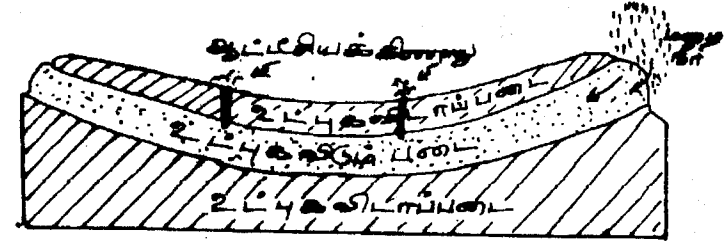 ஆட்டீசியக்கிணறு
மழை
நீர்
உட்புகவிடாப்படை
உட்புகவிடும் படை
உட்புகவிடாப்படை